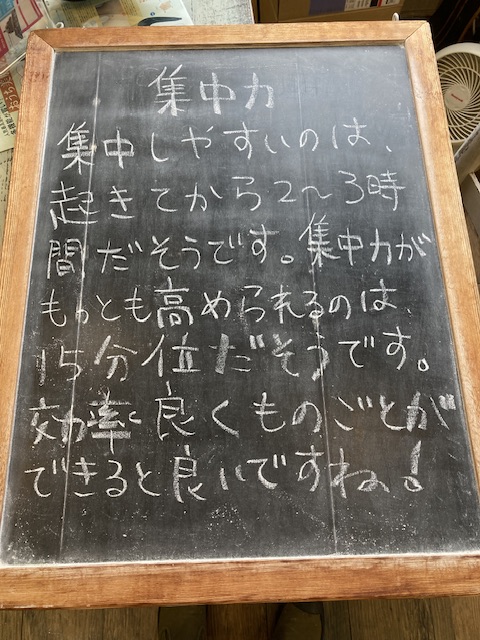 集中力
集中しやすいのは、
起きてから2〜3時
間だそうです。集中力が
もっとも高められるのは、
15分位だそうです。
効率良くものごとが
できると良いですね!